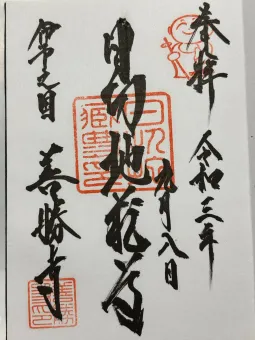 奉拝
令和三年
九月八日
日切地蔵尊
伊予之国
善勝寺